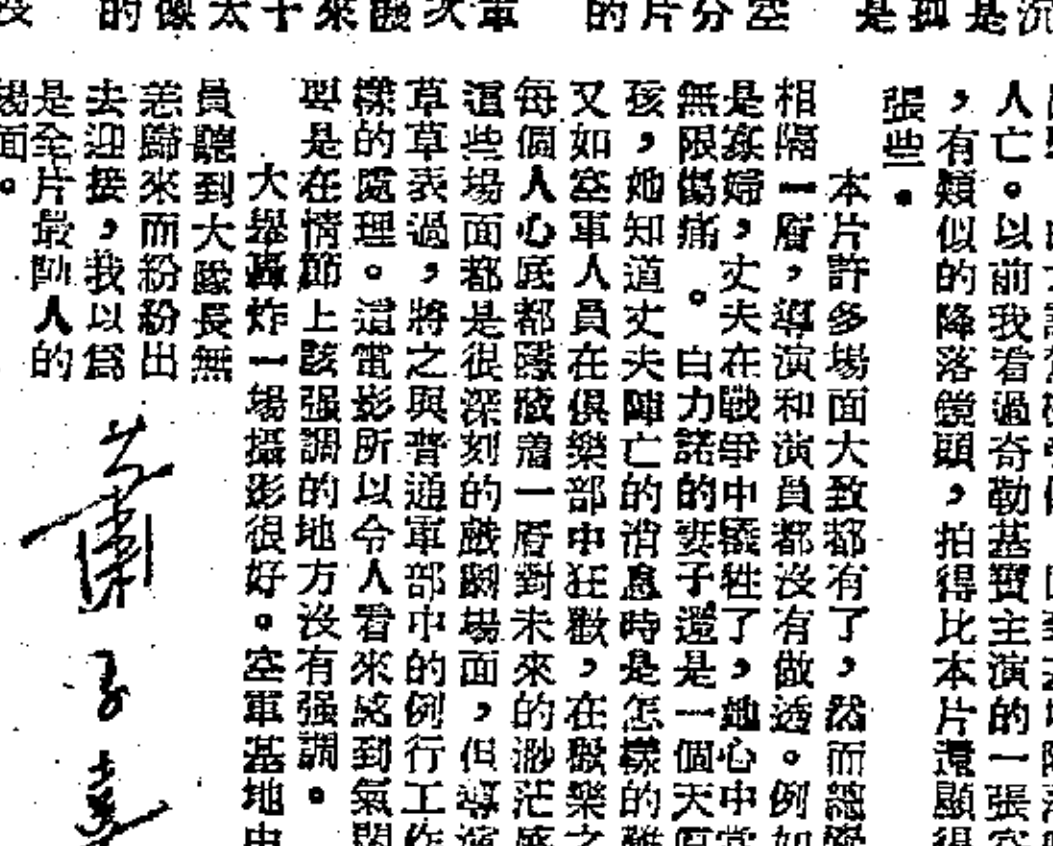 沉
是孤是
空
的片分
軍
次
來
十太像的
人亡。以前我看過奇勒基寶主演的一張空
，有類似的降落鏡頭，拍得比本片還顯得
張些。
本片許多場面大致都有了，然而總覺
相隔一層，導演和演員都沒有做透。例如
是寡婦，丈夫在戰爭中犧牲了，她心中當
無限傷痛。白力諾的妻子還是一個天眞
孩，她知道丈夫陣亡的消息時是怎樣的難
又如空軍人員在俱樂部中狂歡，在歡樂之
每個人心底都隱藏着一層對未來的渺茫感
這些場面都是很深刻的戲劇場面，但導演
草草表過，將之與普通軍部中的例行工作
樣的處理。這電影所以令人看來感到氣悶
要是在情節上該强調的地方沒有强調。
大舉轟炸一場攝影很好。空軍基地中
員聽到大隊長無
恙歸來而紛紛出
去迎接，我以爲
是全片最動人的
場面。